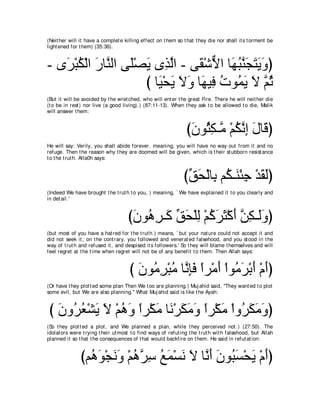 (Neither will it have a complete killing effect on them so that they die nor shall its torment be
lightened for them) (35:36).
(وَيَتَجَنَّبُهَا الاٌّشْقَى - الَّذِى يَصْلَى النَّارَ الْكُبْرَى -
ثُمَّ لاَ يَمُوتُ فِيهَا وَلاَ يَحْيَا )
(But it will be avoided by the wretched, who will enter the great Fire. There he will neither die
(to be in rest) nor live (a good living).) (87:11-13). When they ask to be allowed to die, Malik
will answer them:
(قَالَ إِنَّكُمْ مَّـكِثُونَ)
He will say: Verily, you shall abide forever. meaning, you will have no way out from it and no
refuge. Then the reason why they are doomed will be given, which is their stubborn resistance
to the truth. Alla0h says:
(لَقَدْ جِئْنَـكُم بِالْحَقِّ)
(Indeed We have brought the truth to you, ) meaning, `We have explained it to you clearly and
in detail.'
(وَلَـكِنَّ أَكْثَرَكُمْ لِلْحَقِّ كَـرِهُونَ)
(but most of you have a hatred for the truth.) means, `but your nature could not accept it and
did not seek it; on the contrary, you followed and venerated falsehood, and you stood in the
way of truth and refused it, and despised its followers.' So they will blame themselves and will
feel regret at the time when regret will not be of any benefit to them. Then Allah says:
(أَمْ أَبْرَمُواْ أَمْراً فَإِنَّا مُبْرِمُونَ )
(Or have they plotted some plan Then We too are planning.) Mujahid said, "They wanted to plot
some evil, but We are also planning." What Mujahid said is like the Ayah:
(وَمَكَرُواْ مَكْراً وَمَكَرْنَا مَكْراً وَهُمْ لاَ يَشْعُرُونَ )
(So they plotted a plot, and We planned a plan, while they perceived not.) (27:50). The
idolators were trying their utmost to find ways of refuting the truth with falsehood, but Allah
planned it so that the consequences of that would backfire on them. He said in refutation:
(أَمْ يَحْسَبُونَ أَنَّا لاَ نَسْمَعُ سِرَّهُمْ وَنَجْوَهُم)